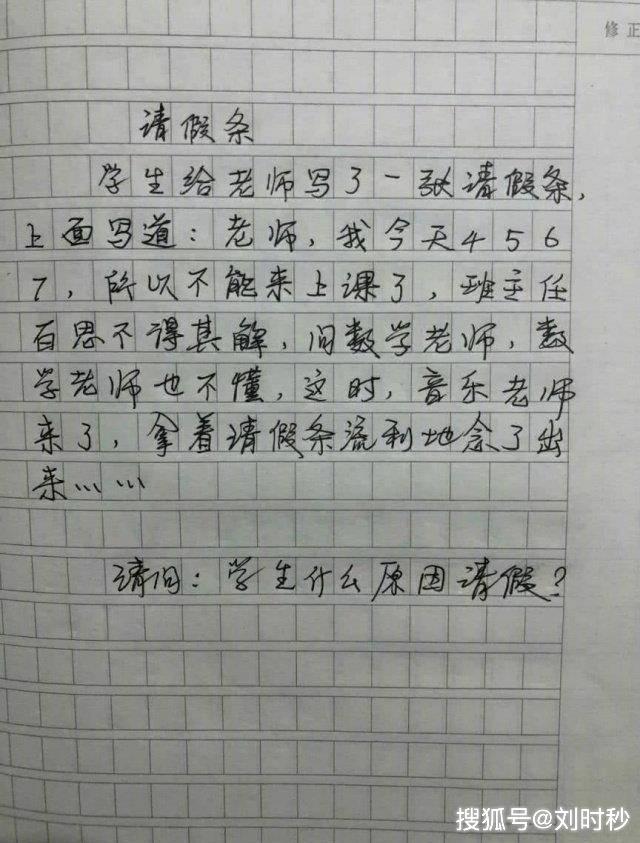 修正
请假条
学生给老师写了一张请假条,
上面写道：老师,我今天456
7,所以不能来上课了,班主任
百思不得其解,问数学老师,数
学老师也不懂,这时,音乐老师
来了,拿着请假条流利地念了出
来……
请问：学生什么原因请假?
搜狐号@刘时秒